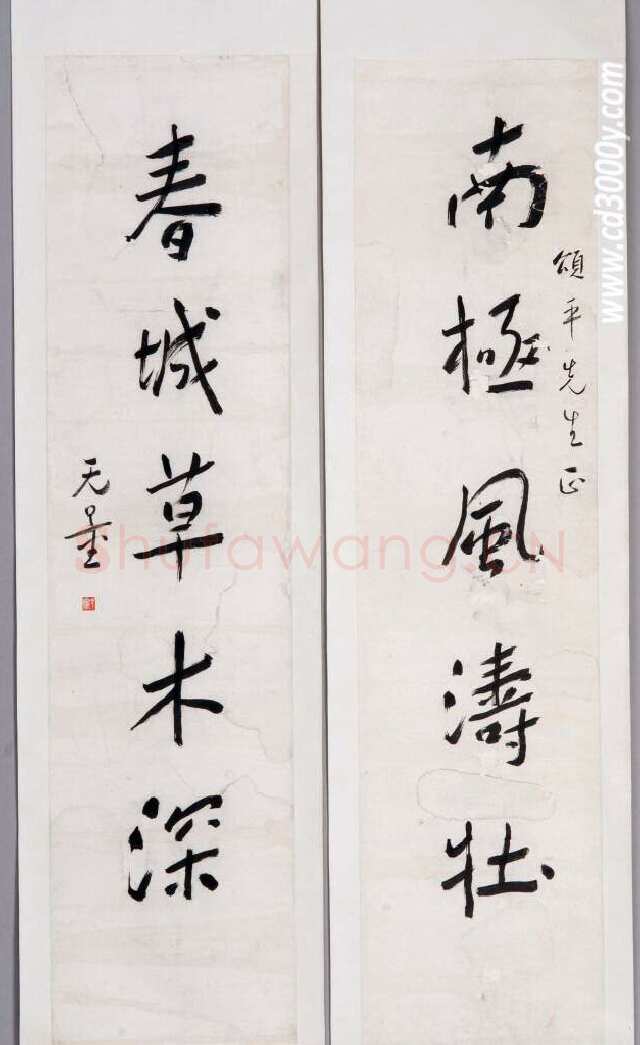 南極風濤壯
頌平先生正
春城草木深
无量
www.cd3000y.com
Shufawang.CN